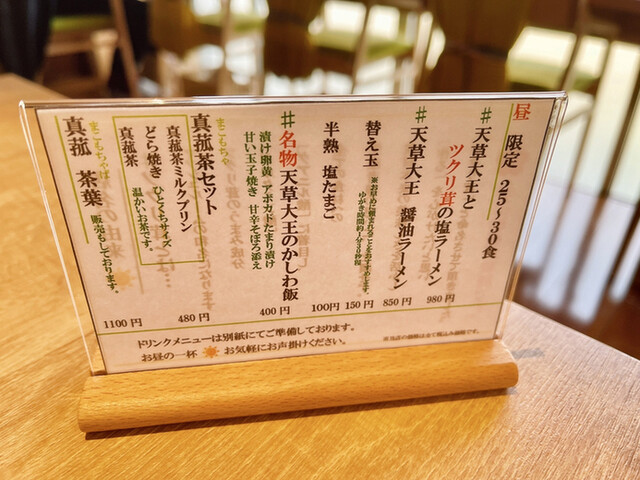 昼 限定 25～30食
# 天草大王と
ツクリ茸の塩ラーメン 980円
# 天草大王 醤油ラーメン 850円
替え玉 150円
※お早めに頼まれることをおすすめします。
ゆがき時間約1分30秒程
半熟 塩たまご 100円
# 名物 天草大王のかしわ飯 400円
漬け卵黄 アボカドたまり漬け
甘い玉子焼き 甘辛そぼろ添え
まこもちゃ
真菰茶セット 480円
真菰茶ミルクプリン
どら焼き ひとくちサイズ
真菰茶 温かいお茶です。
まこもちゃば
真菰 茶葉 販売もしております。 1100円
ドリンクメニューは別紙にてご準備しております。
お昼の一杯 お気軽にお声掛けください。